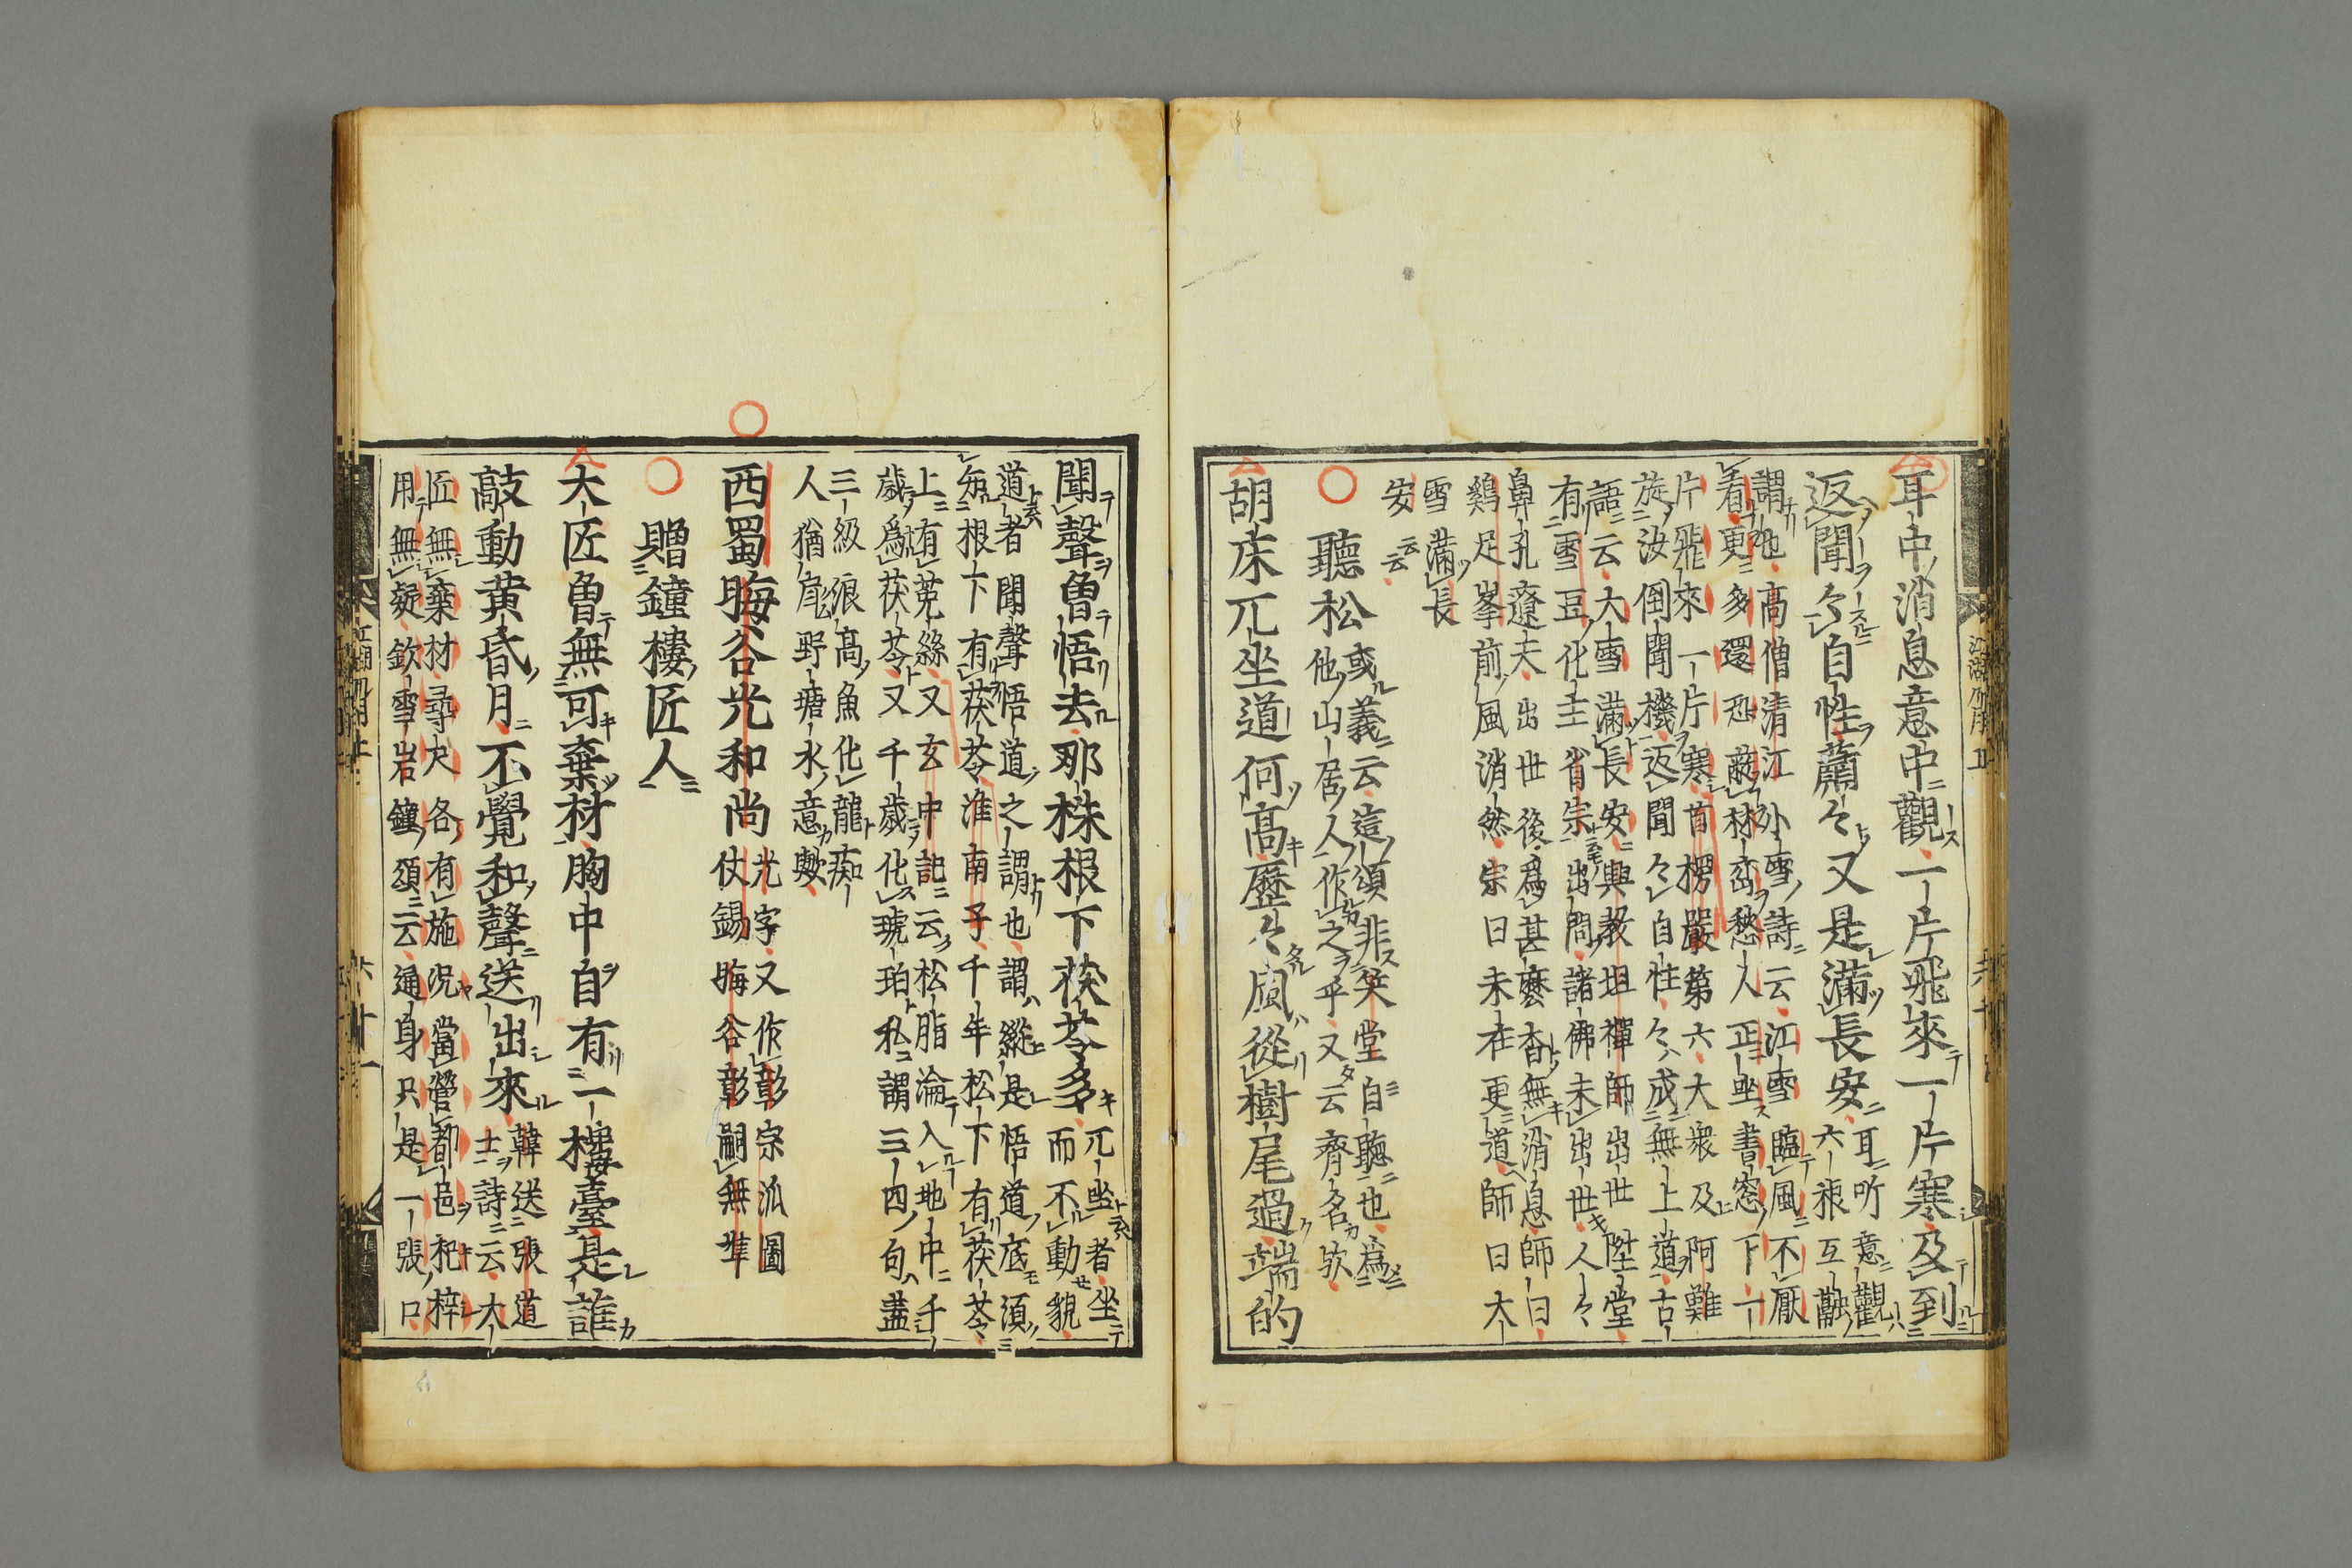 耳中消息意中觀一片飛來一片寒及到
返聞々自性蕭々又是滿長安
耳ニ听意ニ觀
六根互融
謂也高僧清江外雪ノ詩云江雪臨風不厭
看更多還恐蔽材巒愁人正坐書窓下一
片飛來一片寒首楞嚴第六大衆及阿難
旋汝倒聞機返聞々自性々成無上道古
語云大雪滿長安興教坦禪師出世陞堂
有雪豆化主省宗出問諸佛未出世人々
鼻孔遼天出世後爲甚麼杳無消息師曰
鷄足峯前風消然宗曰未在更道師曰大
雪滿長
安云云
聽松
或義云這頌非笑堂自聽也爲
他山居人作之乎又云齊名欤
胡床兀坐道何高歷々風從樹尾過端的
聞聲魯悟去那株根下茯苓多
兀坐者坐
而不動貌
道者聞聲悟道之謂也謂縱是悟道底須
知根下有茯苓淮南子千年松下有茯苓
上有莵絲又玄中記云松脂淪入地中千
歲爲茯苓又千歲化琥珀私謂三四句盡
三級浪高魚化龍痴
人猶戽野塘水意歟
西蜀晦谷光和尚
光字又作彰宗派圖
仗錫晦谷彰嗣無準
贈鐘樓匠人
大匠魯無可棄材胸中自有一樓臺是誰
敲動黄昏月不覺和聲送出來
韓送張道
士詩云大
匠無棄材尋尺各有施況當營都邑杞梓
用無疑欽雪岩鐘頌云通身只是一張口